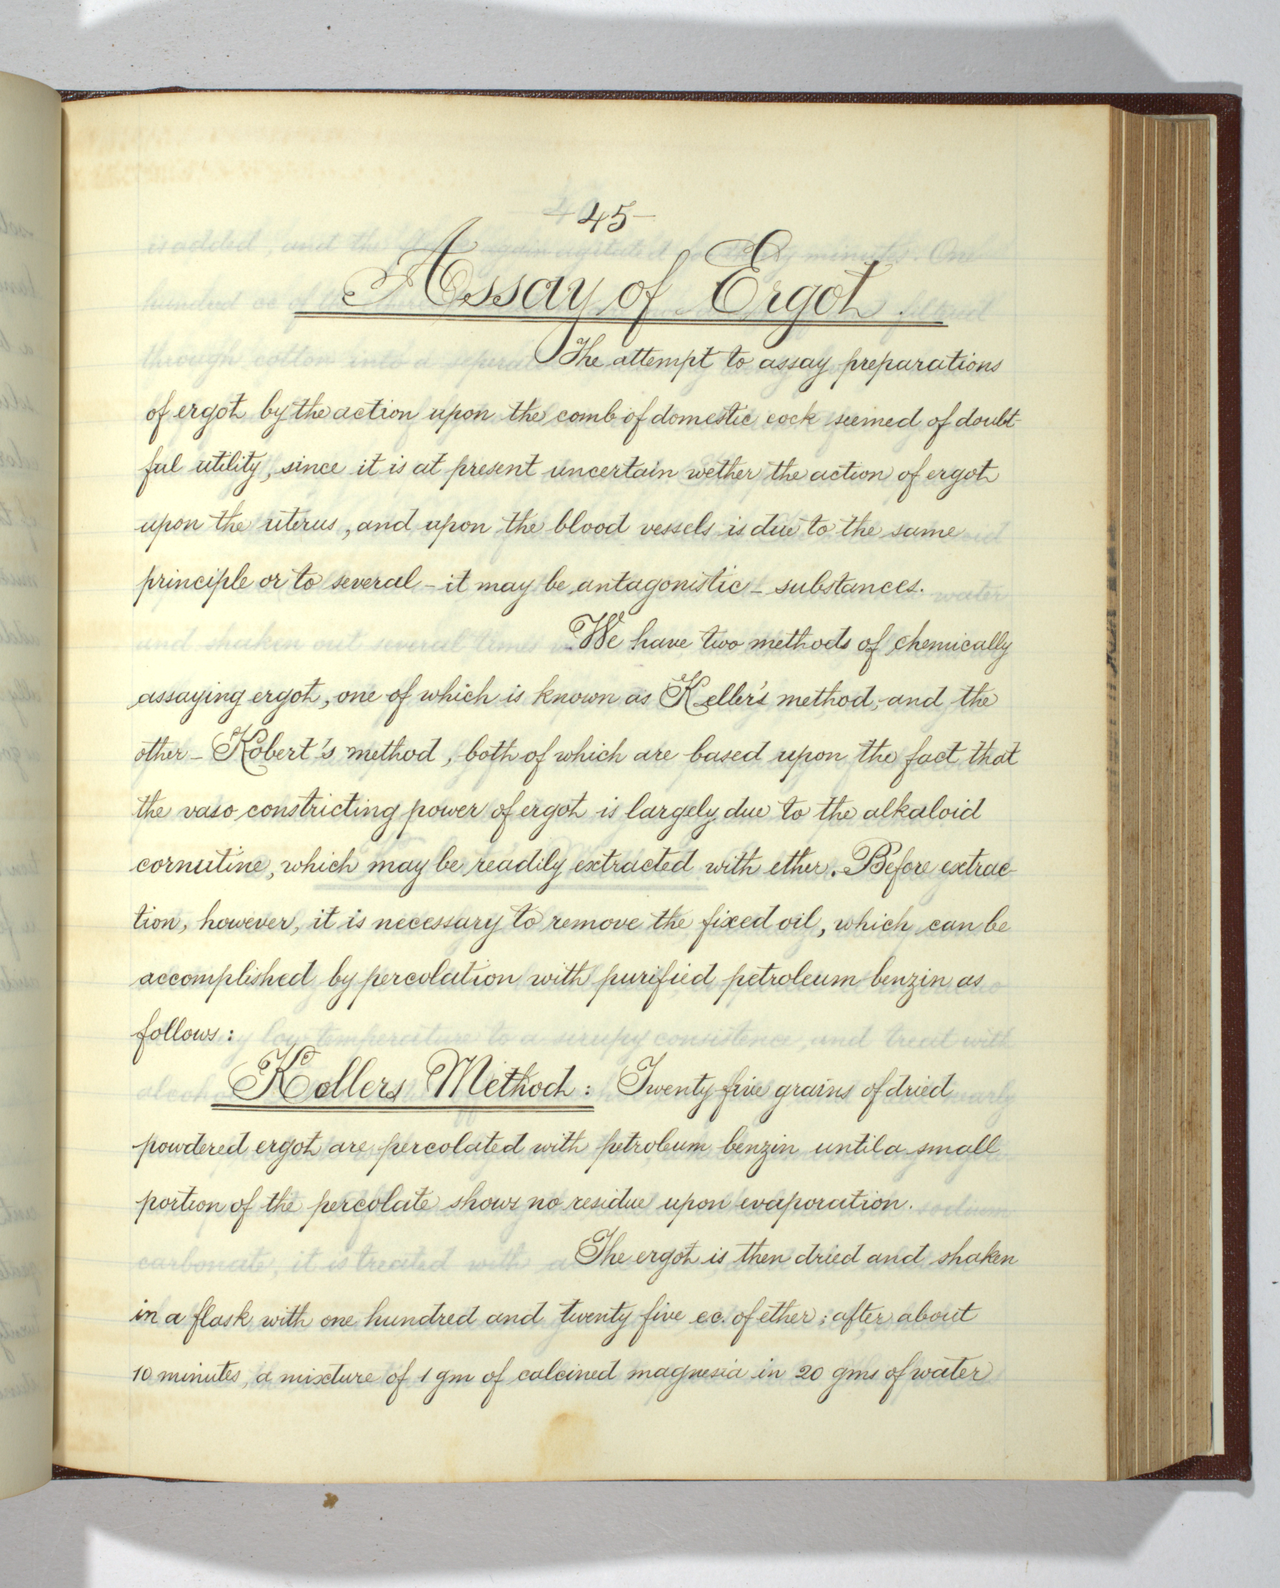 45
Assay of Ergot.
The attempt to assay preparations
of ergot by the action upon the comb of domestic cock seemed of doubt-
ful utility, since it is at present uncertain wether the action of ergot
upon the uterus, and upon the blood vessels is due to the same
principle or to several - it may be antagonistic - substances.
We have two methods of chemically
assaying ergot, one of which is known as Keller's method, and the
other - Kobert's method, both of which are based upon the fact that
the vaso constricting power of ergot is largely due to the alkaloid
cornutine, which may be readily extracted with ether. Before extrac-
tion, however, it is necessary to remove the fixed oil, which can be
accomplished by percolation with purified petroleum benzin as
follows:
Kellers Method: Twenty five grains of dried
powdered ergot are percolated with petroleum benzin until a small
portion of the percolate shows no residue upon evaporation.
The ergot is then dried and shaken
in a flask with one hundred and twenty five cc. of ether; after about
10 minutes, a mixture of 1 gm of calcined magnesia in 20 gms of water